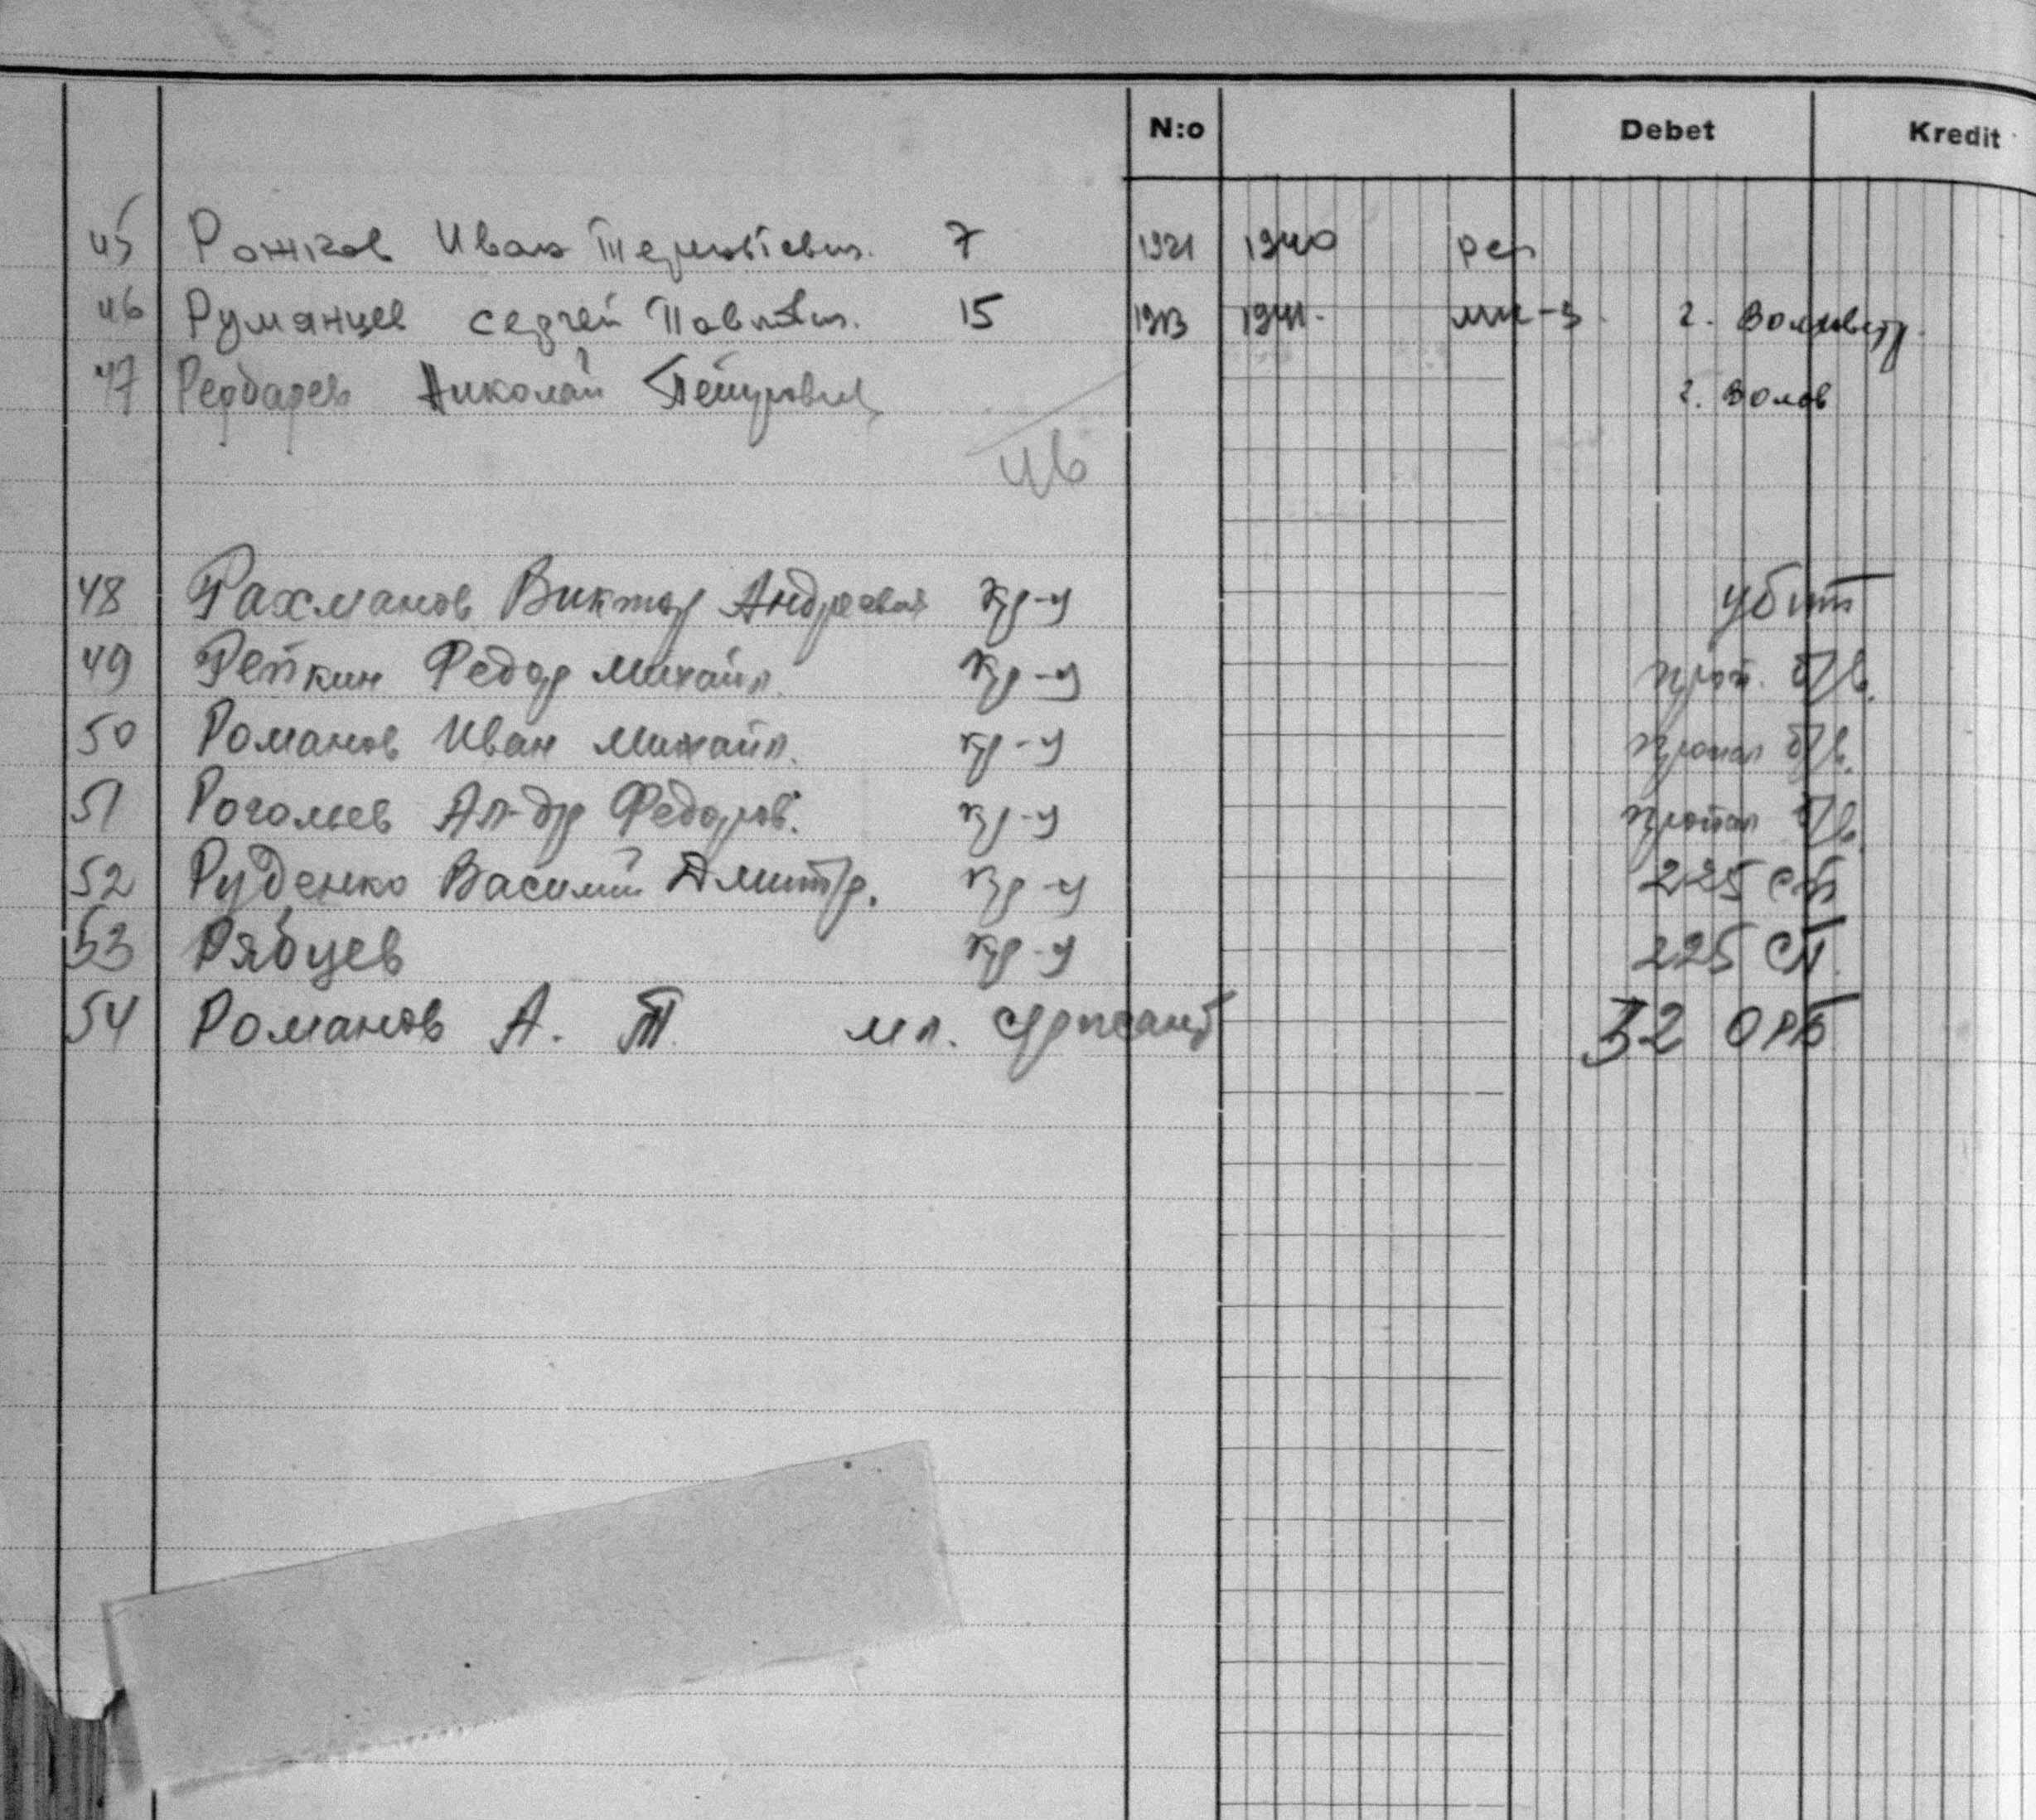 N:o Debet Kredit
45 Рожков Иван 7 1921 1940
46 Румянцев Сергей Павлович. 15 1913 1941. г.
47 Николай Петрович г. Волов
46
48 Рахманов Виктор Андреевич кр-ц убит
49 Репкин Федор Михайл. кр-ц проп. б/в.
50 Романов Иван Михайл. кр-ц пропал б/в.
51 Ал-др Федоров. кр-ц пропал б/в.
52 Руденко Василий Дмитр. кр-ц 225 СП
53 Рябцев кр-ц 225 СП.
54 Романов А. Т. мл. сержант 32 ОРБ